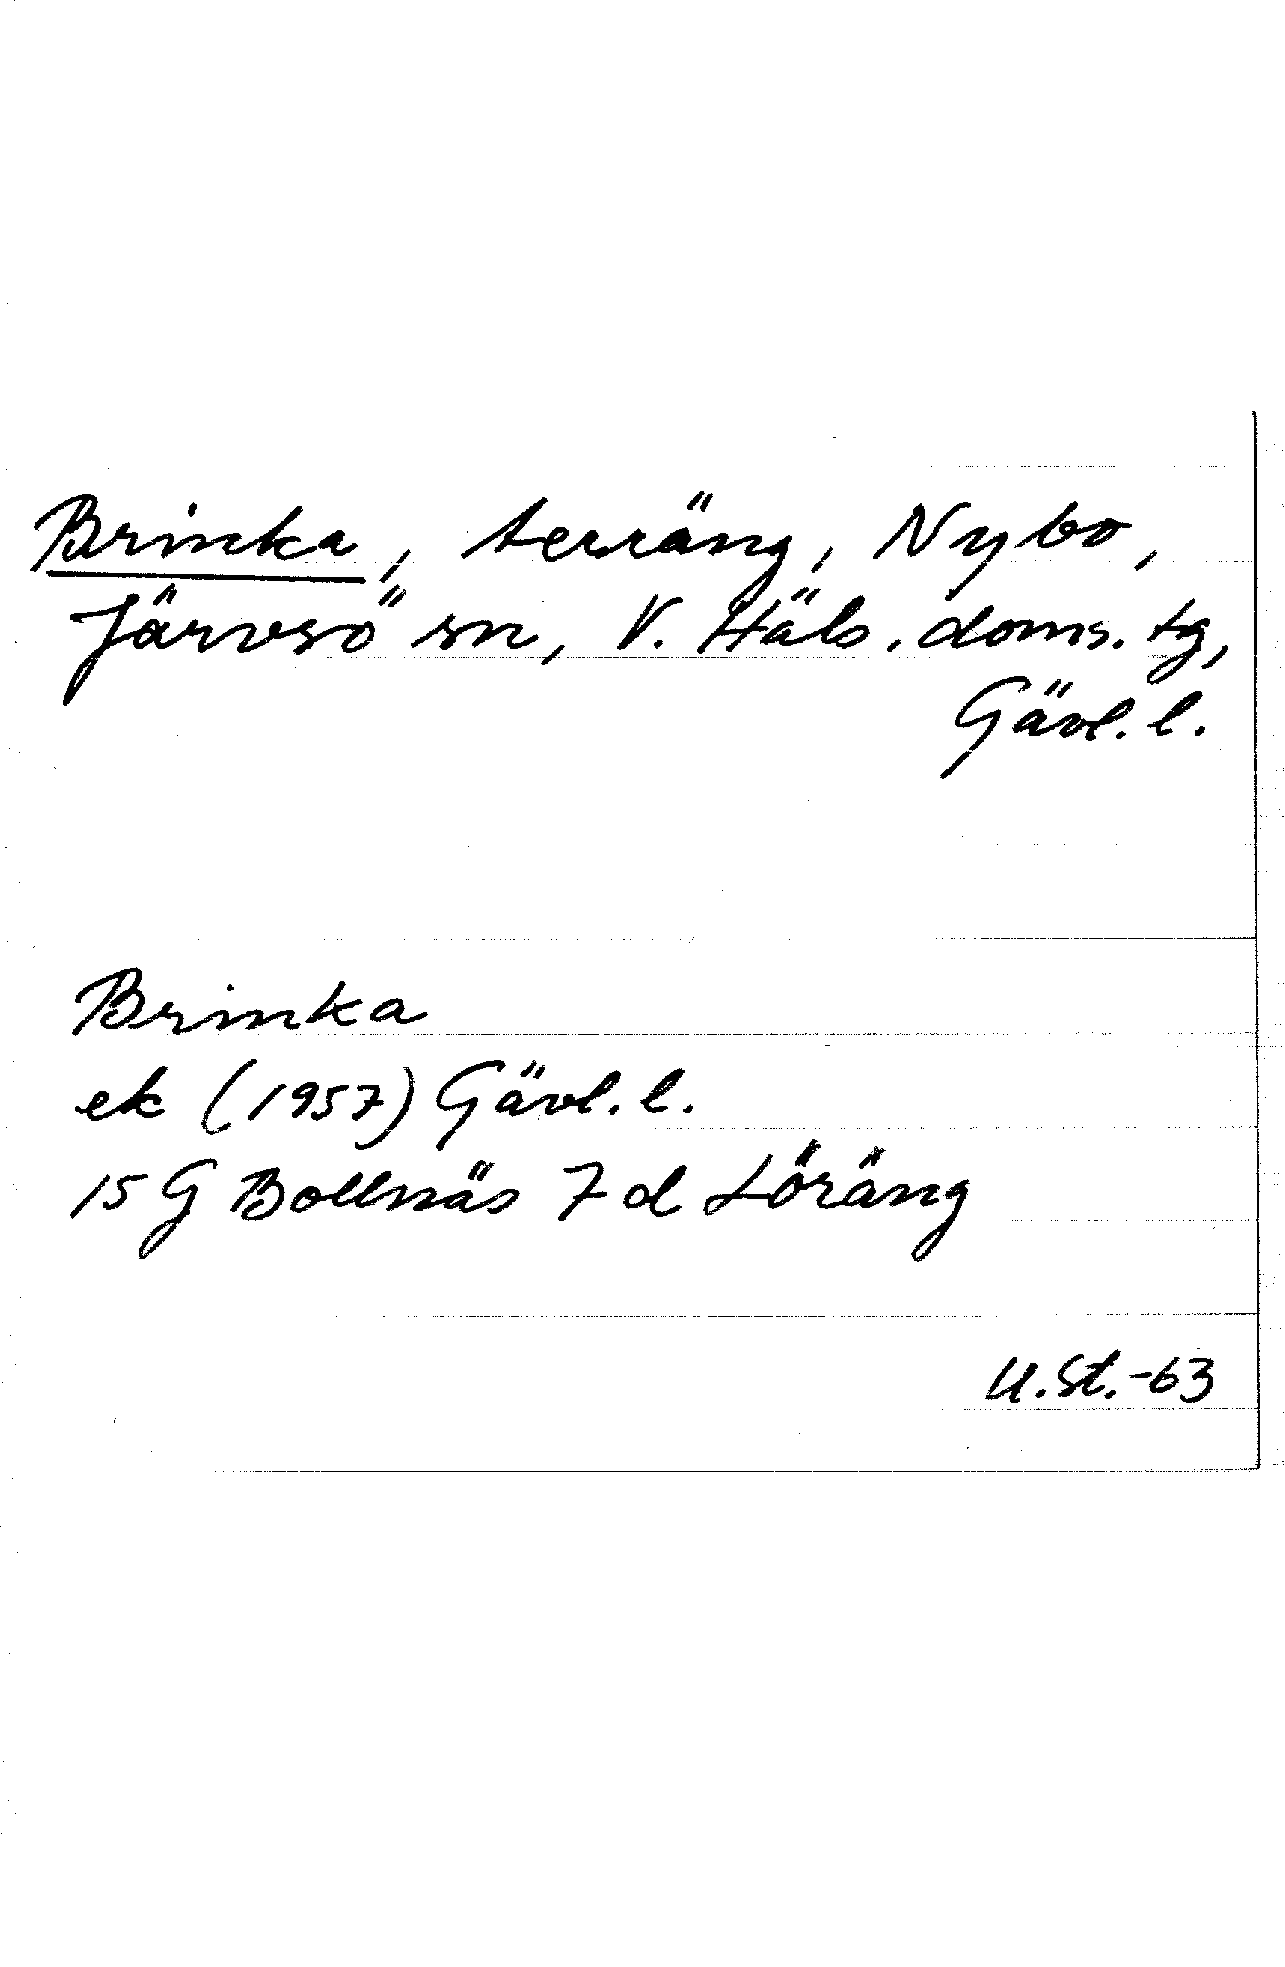 Brinka, terräng, Nybo,
Järvsö sn, V. Häls. doms. tg,
Gävl. l.
Brinka
ek (1957) Gävl. l.
15 G Bollnäs 7 d Löräng
U. St. -63